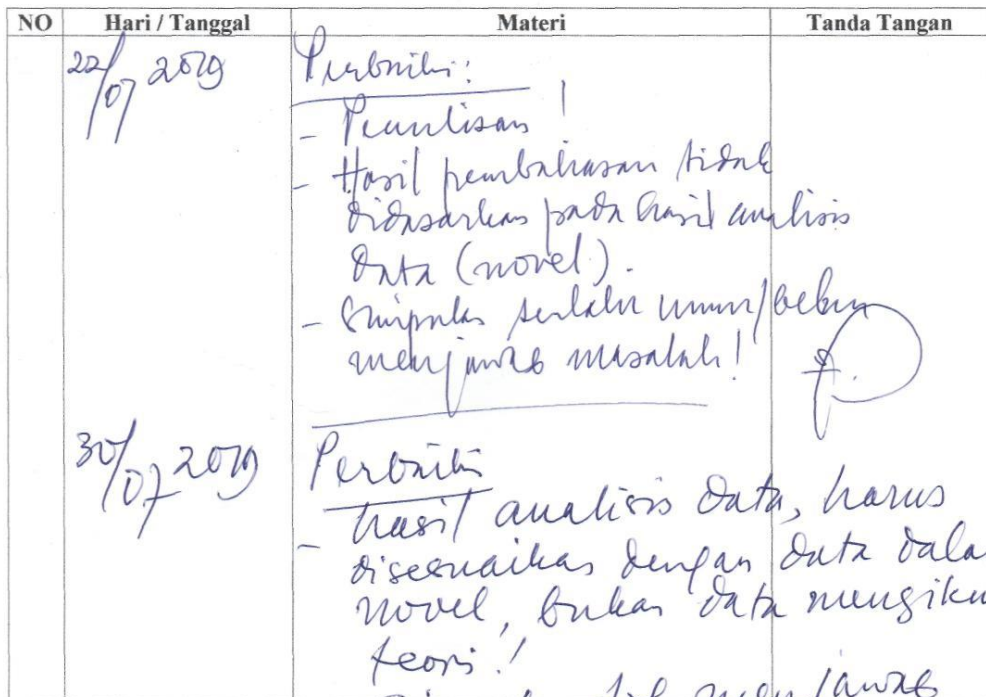 NO Hari / Tanggal Materi Tanda Tangan
22/07 2019 Perbaiki:
- Penulisan!
- Hasil pembahasan tidak
didasarkan pada hasil analisis
data (novel).
- Simpulan terlalu umum/belum
menjawab masalah!
30/07 2019 Perbaiki
- hasil analisis data, harus
disesuaikan dengan data dala
novel, bukan data mengiku
teori!
menjawab